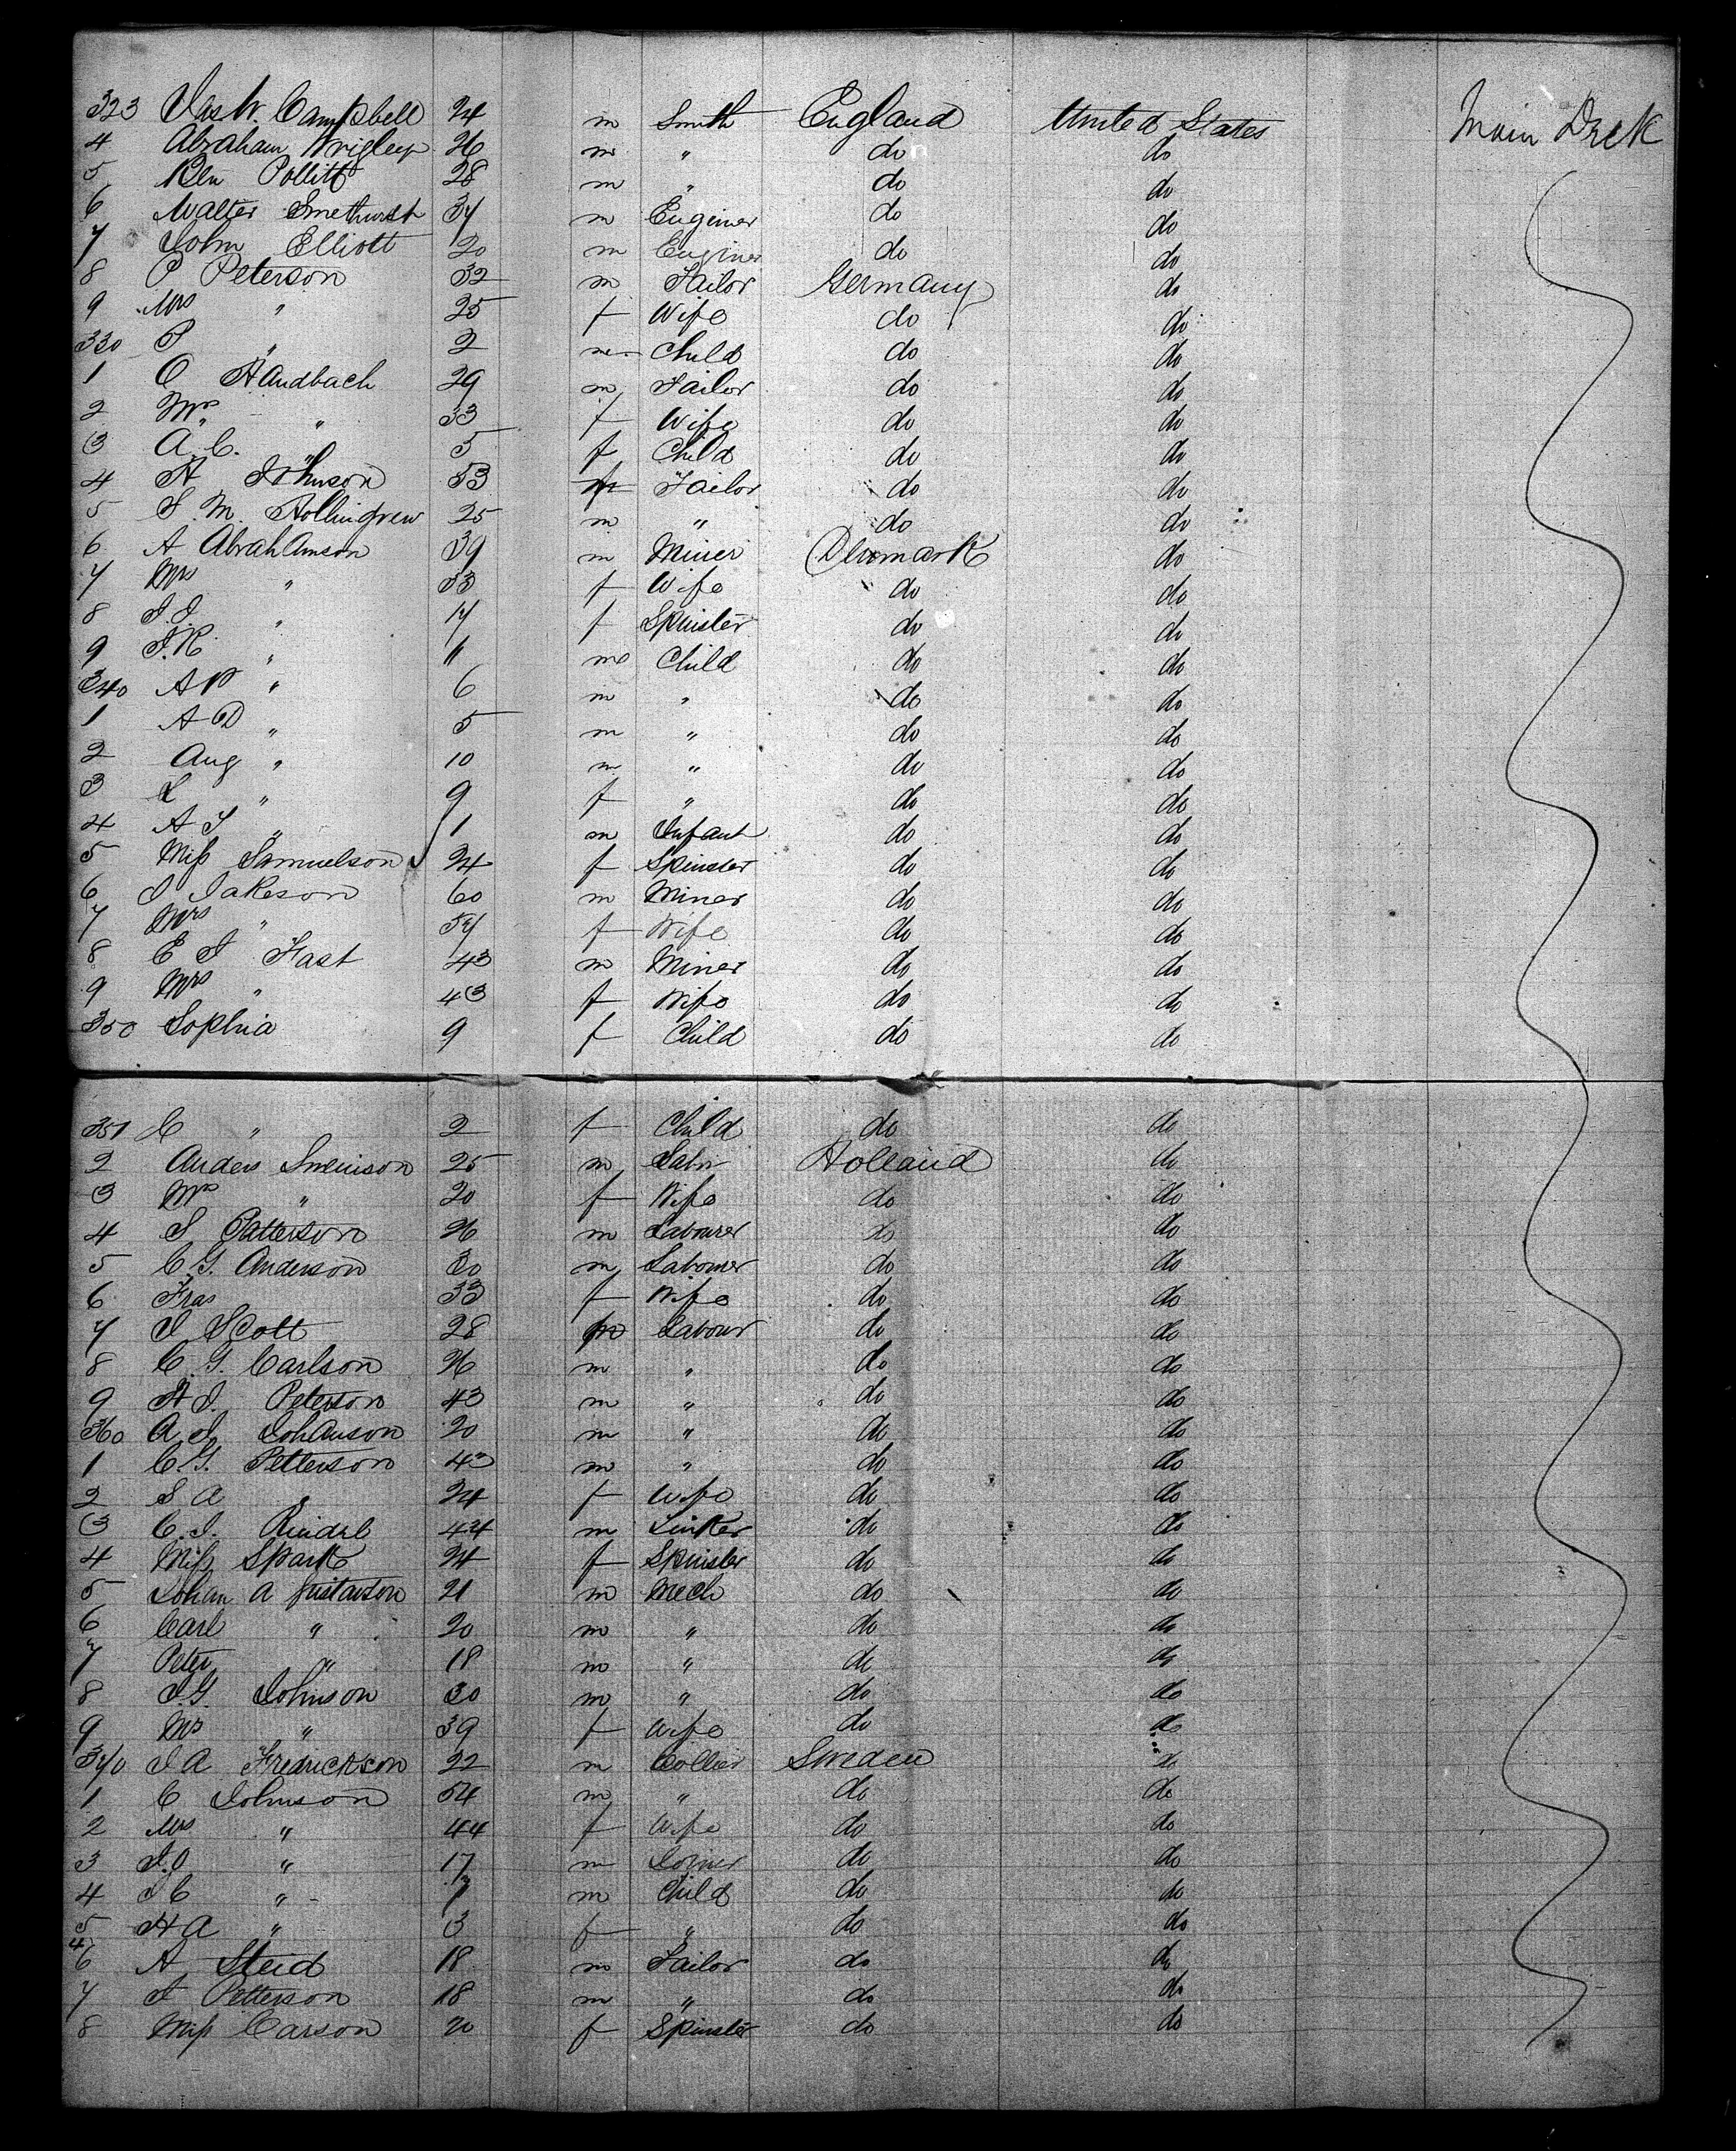 323 Jas W. Campbell 24 m Smith England United States Main Deck
4 Abraham Wrigley 26 m " do do
5 Ben Pollitt 28 m " do do
6 Walter Smethurst 34 m Enginer do do
7 John Elliott 20 m Enginer do do
8 P Peterson 32 m Tailor Germany do
9 Mrs " 25 f Wife do do
330 P " 2 m Child do do
1 O Handbach 29 m Tailor do do
2 Mrs " 33 f Wife do do
3 A. C. " 5 f Child do do
4 A Johnson 53 m Tailor do do
5 S. M. 25 m " do do
6 A Abrahamson 39 m Miner Denmark do
7 Mrs " 33 f Wife do do
8 J. J. " 17 f Spinster do do
9 J. K. " 11 m Child do do
340 A P " 6 m " do do
1 A D " 5 m " do do
2 Aug " 10 m " do do
3 L " 9 f " do do
4 A J " 1 m Infant do do
5 Miss Samuelson 24 f Spinster do do
6 J Jakeson 60 m Miner do do
7 Mrs " 57 f Wife do do
8 E J Fast 43 m Miner do do
9 Mrs " 43 f Wife do do
350 Sophia 9 f Child do do
351 C " 2 f Child do do
2 Anders Swenison 25 m Labr Holland do
3 Mrs " 20 f Wife do do
4 S Patterson 26 m Labourer do do
5 C G. Anderson 30 m Labourer do do
6 Fras 33 f Wife do do
7 J Scott 28 m Labour do do
8 C. G. Carlson 26 m " do do
9 A J. Peterson 43 m " do do
360 A J. Johanson 20 m " do do
1 C. G. Petterson 43 m " do do
2 S A " 24 f Wife do do
3 C. J. Rindel 44 m Tinker do do
4 Miss Spark 24 f Spinster do do
5 Johan A Gustavson 21 m Mech do do
6 Carl " 20 m " do do
7 Peter " 18 m " do do
8 J G. Johnson 30 m " do do
9 Mrs " 39 f Wife do do
370 J A Fredrickson 22 m Collier Sweden do
1 C Johnson 54 m " do do
2 Mrs " 44 f Wife do do
3 J. O " 17 m Joiner do do
4 J C " 7 m Child do do
5 H A " 3 f " do do
6 A Steid 18 m Tailor do do
7 A Petterson 18 m " do do
8 Miss Carson 20 f Spinster do do